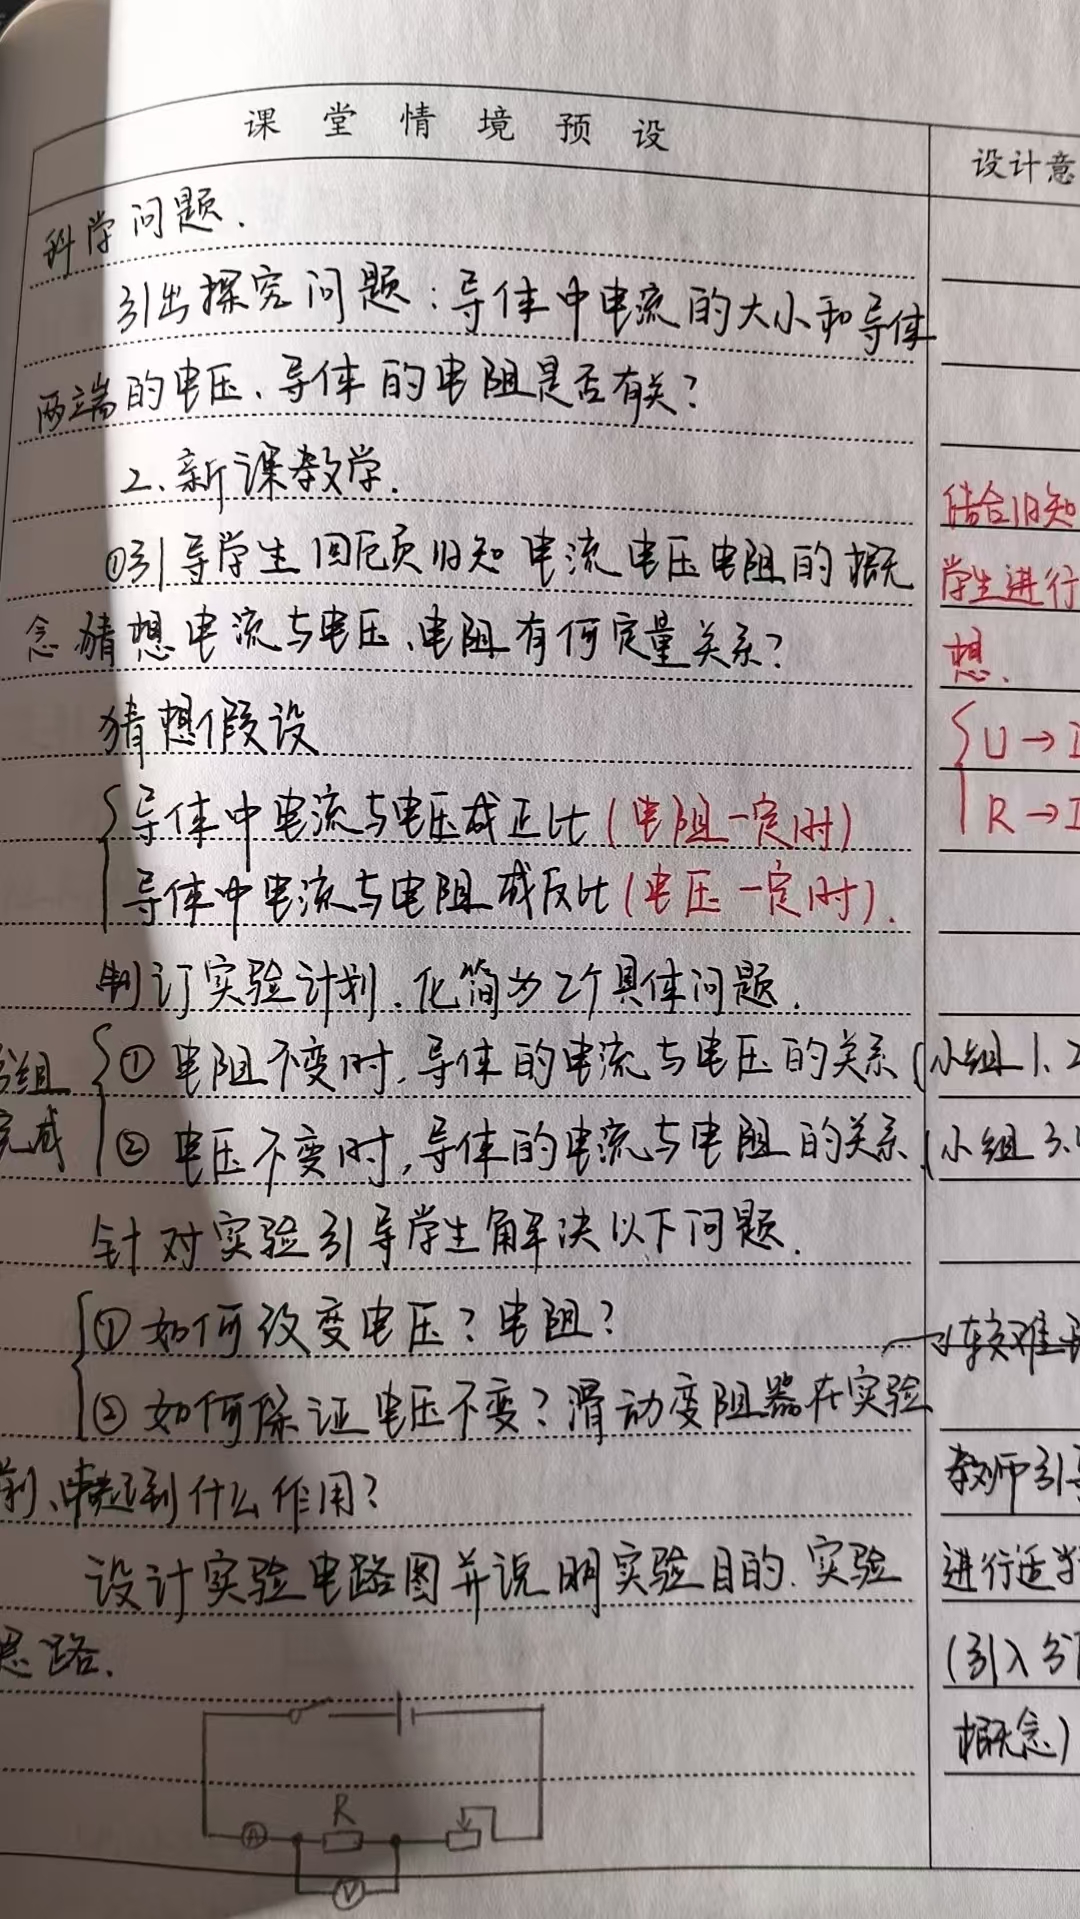 课堂情境预设
设计意
科学问题.
引出探究问题:导体中电流的大小和导体
两端的电压、导体的电阻是否有关?
2、新课教学.
①引导学生回顾旧知电流电压电阻的概
结合旧知
学生进行
念猜想电流与电压、电阻有何定量关系?
想.
猜想假设
U→I
导体中电流与电压成正比(电阻一定时)
R→I
导体中电流与电阻成反比(电压一定时).
制订实验计划,化简为2个具体问题.
①电阻不变时,导体的电流与电压的关系(小组1、2
组
②电压不变时,导体的电流与电阻的关系(小组3、
完成
针对实验引导学生解决以下问题.
①如何改变电压?电阻?
→(较难
②如何保证电压不变?滑动变阻器在实验
教师引导
前、中起到什么作用?
设计实验电路图并说明实验目的.实验
进行适当
思路.
(引入分
概念)
R
A
V